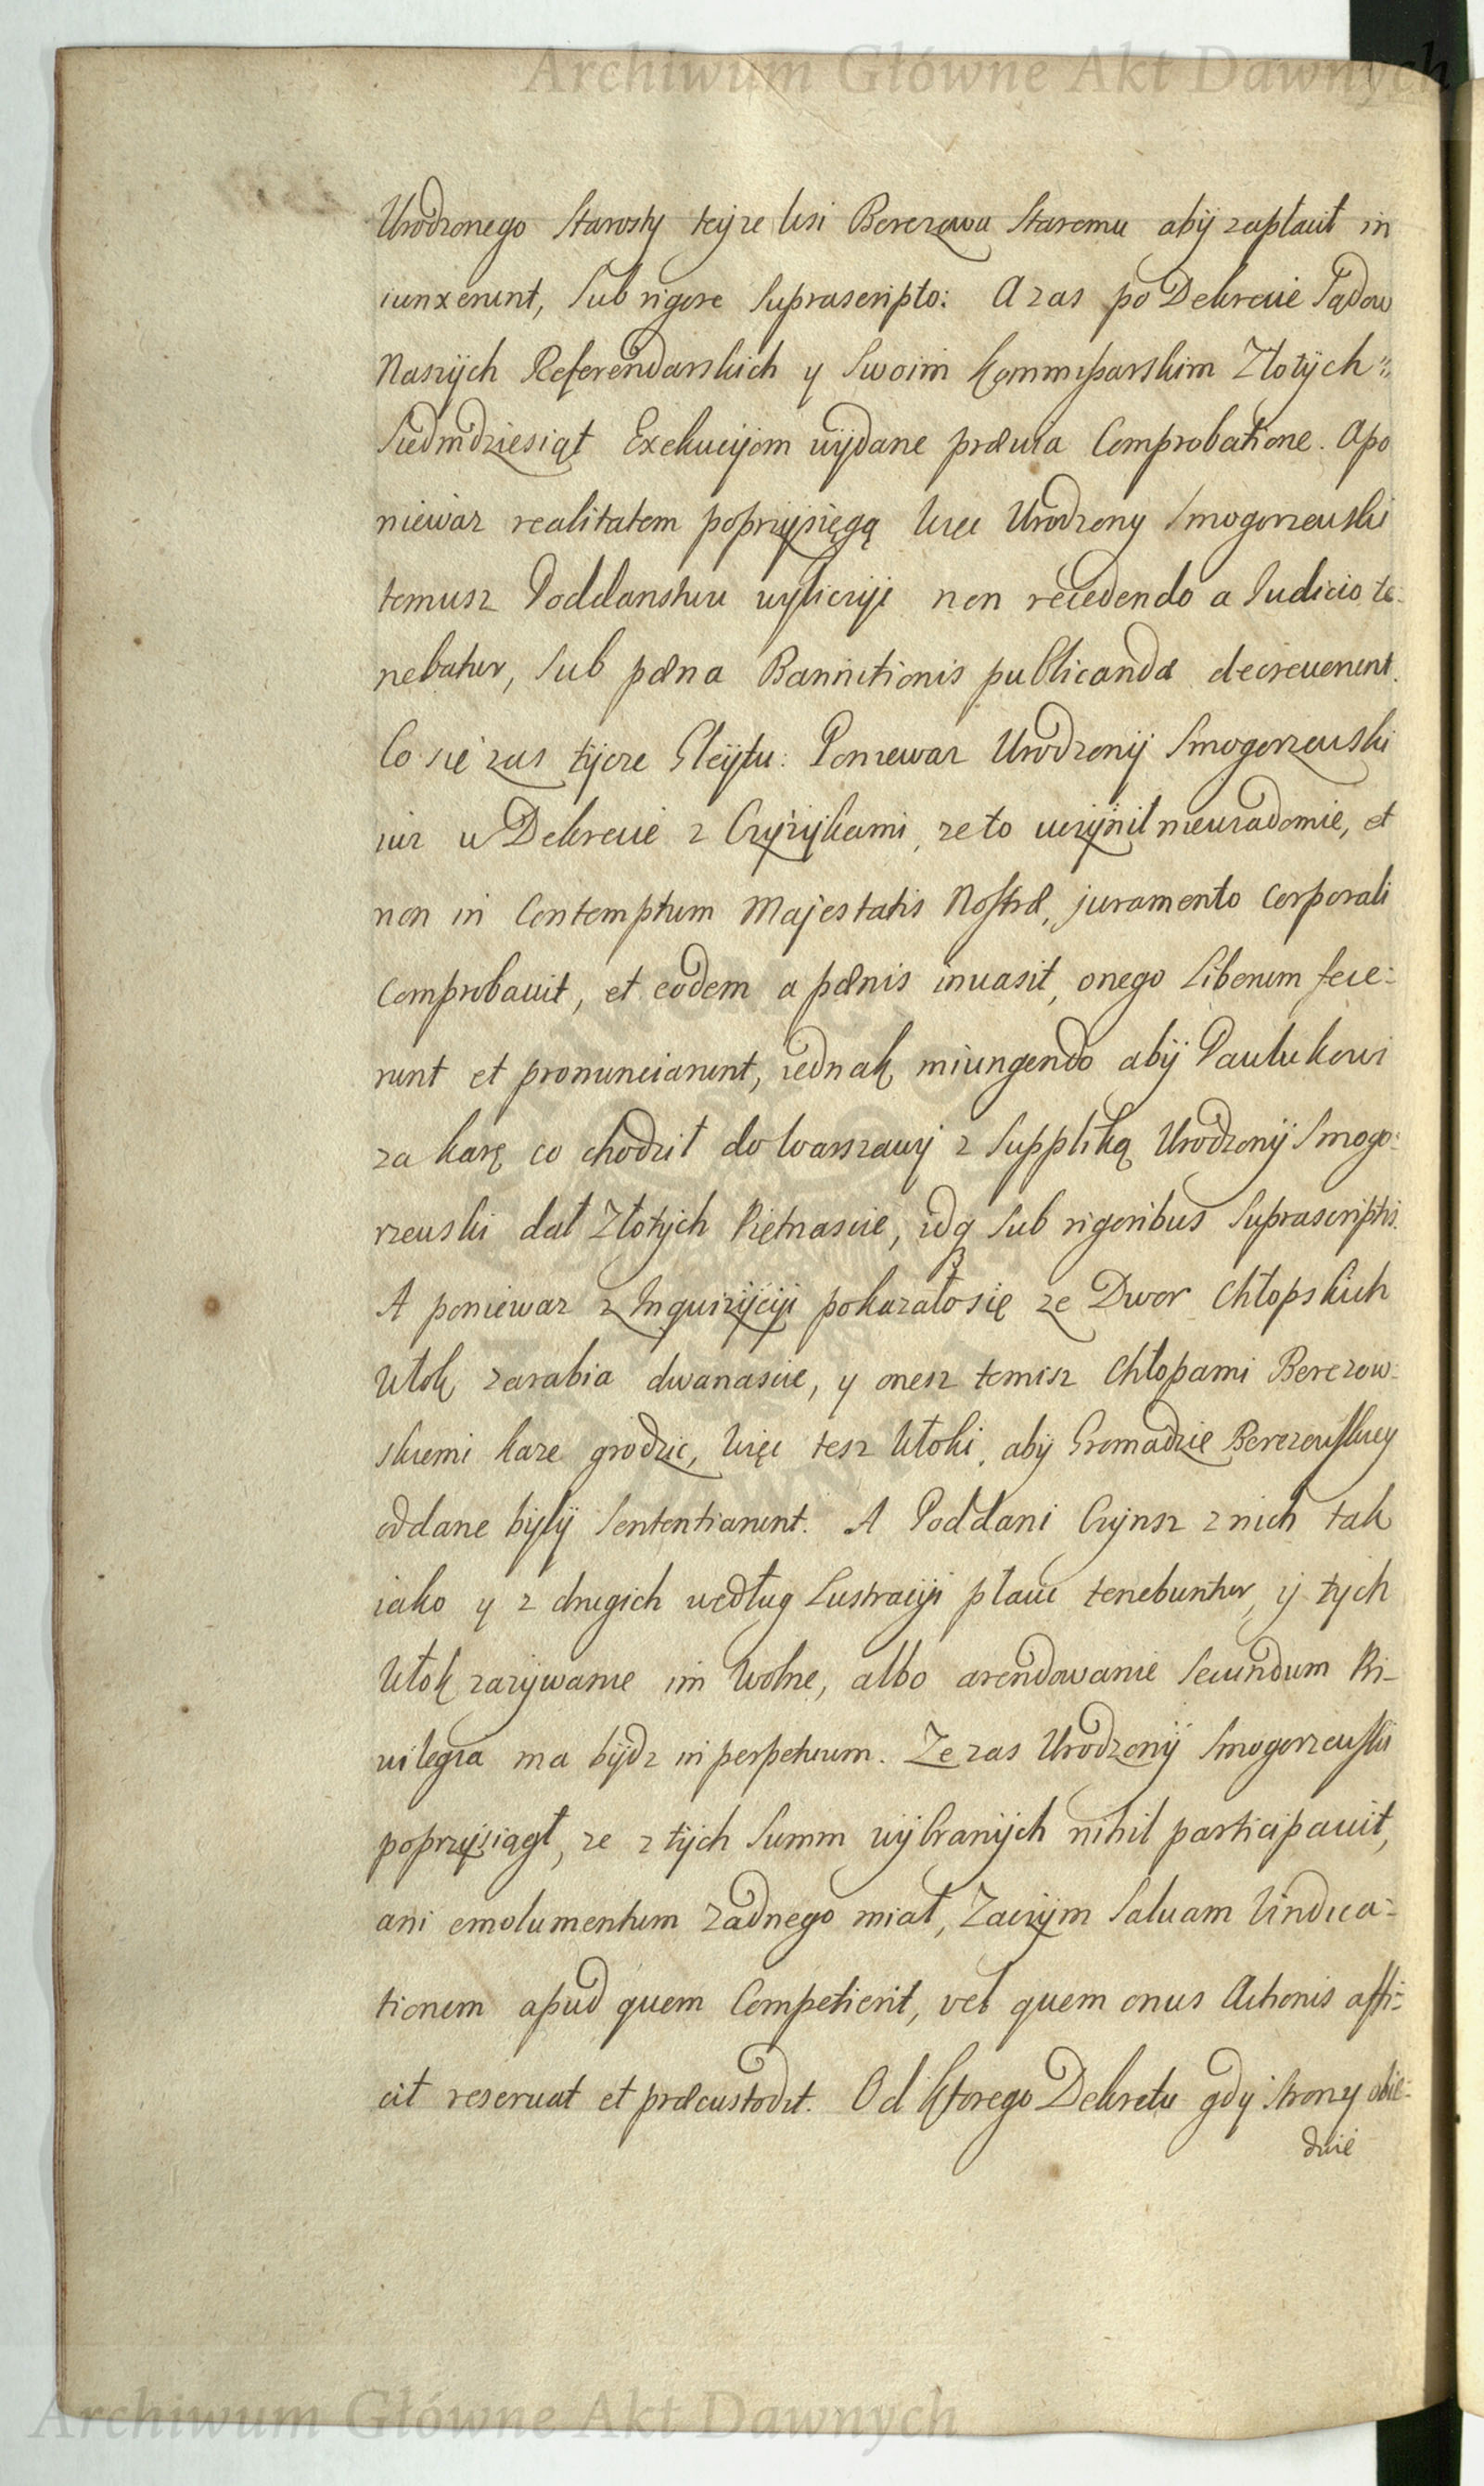 Archiwum Główne Akt Dawnych
Urodzonego Starosty teyze Wsi Berezowa Staremu abÿ zapłacił in
iunxerunt, Sub rigore Suprascripto: A zas po Dekrecie Sądow
Naszÿch Referendarskich y Swoim Kommissarskim Złotÿch
Siedmdziesiąt Exekucÿom wÿdane prævia Comprobatione. A po
niewaz realitatem poprzÿsięgą Więc Urodzony Smogorzewski
temusz Poddanstwu wÿliczÿc non recedendo a Judicio te:
nebatur, Sub pæna Bannitionis publicandæ decreuerunt.
Co się zas tÿcze Gleÿtu: Poniewaz Urodzonÿ Smogorzewski
iuz w Dekrecie z Czÿzÿkami, ze to uczÿnił niewiadomie, et
non in Contemptum Majestatis Nostræ, juramento Corporali
Comprobauit, et eodem a pænis inuasit, onego Liberum fece:
runt et pronunciarunt, iednak iniungendo abÿ Pawlukowi
za karę co chodził do Warszawÿ z Suppliką Urodzonÿ Smogo:
rzewski dał Złotÿch Piętnascie, idq3 Sub rigoribus Suprascriptis.
A poniewaz z Inquizÿcÿi pokazało się ze Dwor Chłopskich
Włok zarabia dwanascie, y onesz temisz Chłopami Berezow:
skiemi kaze grodzic, Więc tesz Włoki, abÿ Gromadzie Berezowskiey
oddane bÿłÿ Sententiarunt. A Poddani Czÿnsz z nich tak
iako y z drugich według Lustracÿi płacic tenebuntur, ÿ tych
Włok zazÿwanie im Wolne, albo arendowanie Secundum Pri-
uilegia ma bÿdz in perpetuum. Ze zas Urodzonÿ Smogorzewski
poprzÿsiągł, ze z tÿch Summ wÿbranÿch nihil participauit,
ani emolumentum zadnego miał, Zaczÿm Saluam Vindica:
tionem apud quem Competierit, vel quem onus Actionis affi:
cit reseruat et præcustodit. Od Ktorego Dekretu gdÿ Strony obie:
dwie
Archiwum Główne Akt Dawnych